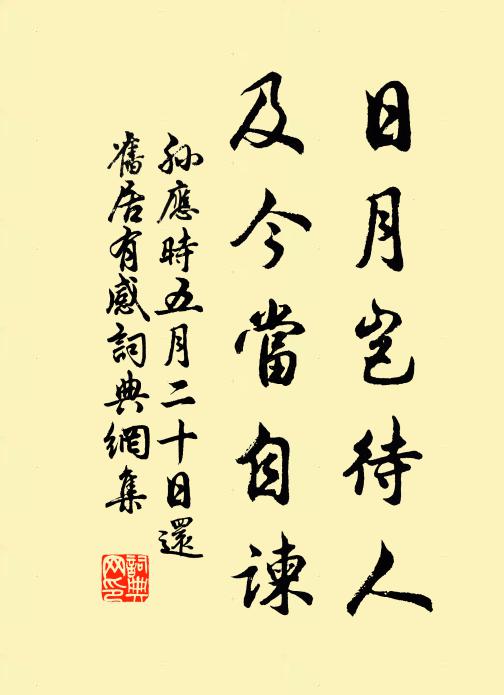 日月岂待人
及今當自諫
孙應時五月二十日還
舊居有感詞典網集
詞典
网印